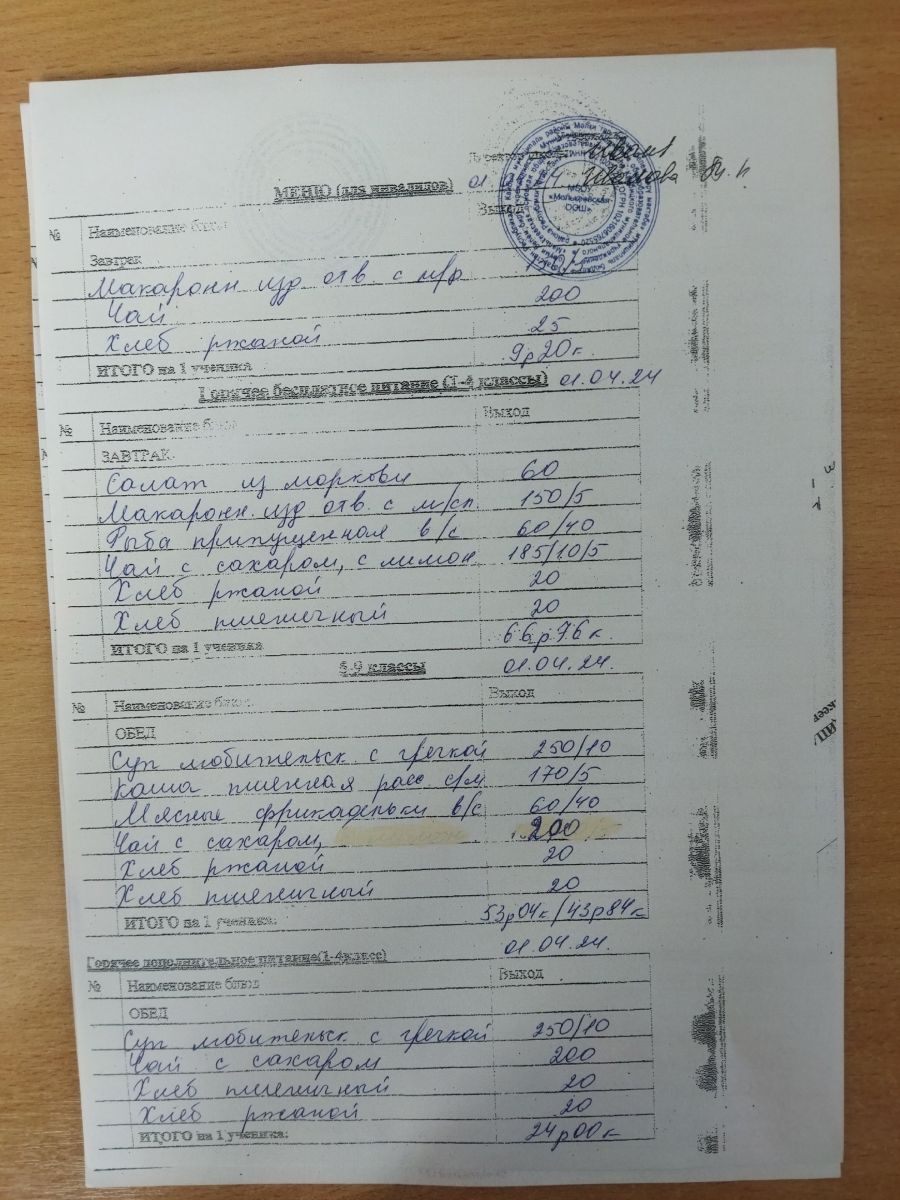 Директор
01. 04
МЕНЮ (для инвалидов)
№ Наименование блюд Выход
Завтрак
Макаронн изд отв. с м/р
Чай 200
Хлеб ржаной 25
ИТОГО на 1 ученика 9р20к
Горячее бесплатное питание (1-4 классы) 01.04.24
№ Наименование блюд Выход
ЗАВТРАК
Салат из моркови 60
Макаронн. изд отв. с м/сл 150/5
Рыба припущенная в/с 60/40
Чай с сахаром, с лимон. 185/10/5
Хлеб ржаной 20
Хлеб пшеничный 20
ИТОГО на 1 ученика 66р76к
5-9 классы 01.04.24.
№ Наименование блюд Выход
ОБЕД
Суп любительск с гречкой 250/10
Каша пшенная расс с/м 170/5
Мясные фрикадельки в/с 60/40
Чай с сахаром, 200
Хлеб ржаной 20
Хлеб пшеничный 20
ИТОГО на 1 ученика: 53р04к/43р84к
01.04.24.
Горячее дополнительное питание(1-4класс)
№ Наименование блюд Выход
ОБЕД
Суп любительск с гречкой 250/10
Чай с сахаром 200
Хлеб пшеничный 20
Хлеб ржаной 20
ИТОГО на 1 ученика: 24р00к